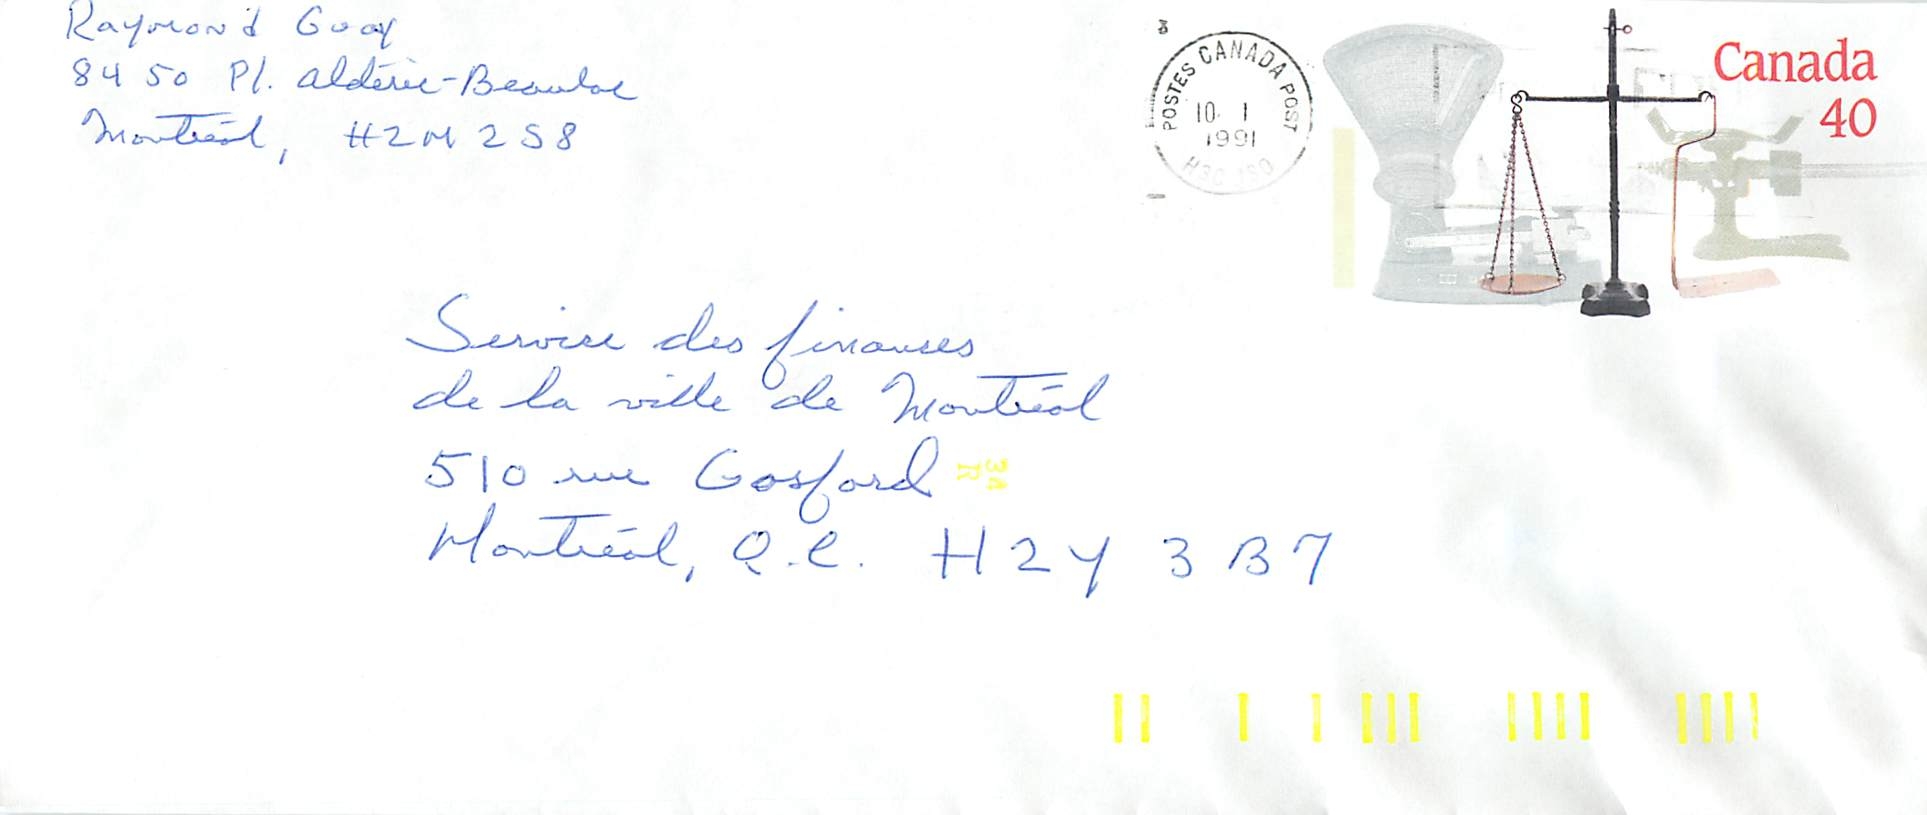 Raymond Guay
8450 Pl. Aldéric-Beaulac
Montréal, H2M 2S8
POSTES CANADA POST
10. 1
1991
H3C 1S0
Canada
40
Service des finances
de la ville de Montréal
510 rue Gosford
Montréal, Q.C. H2Y 3B7